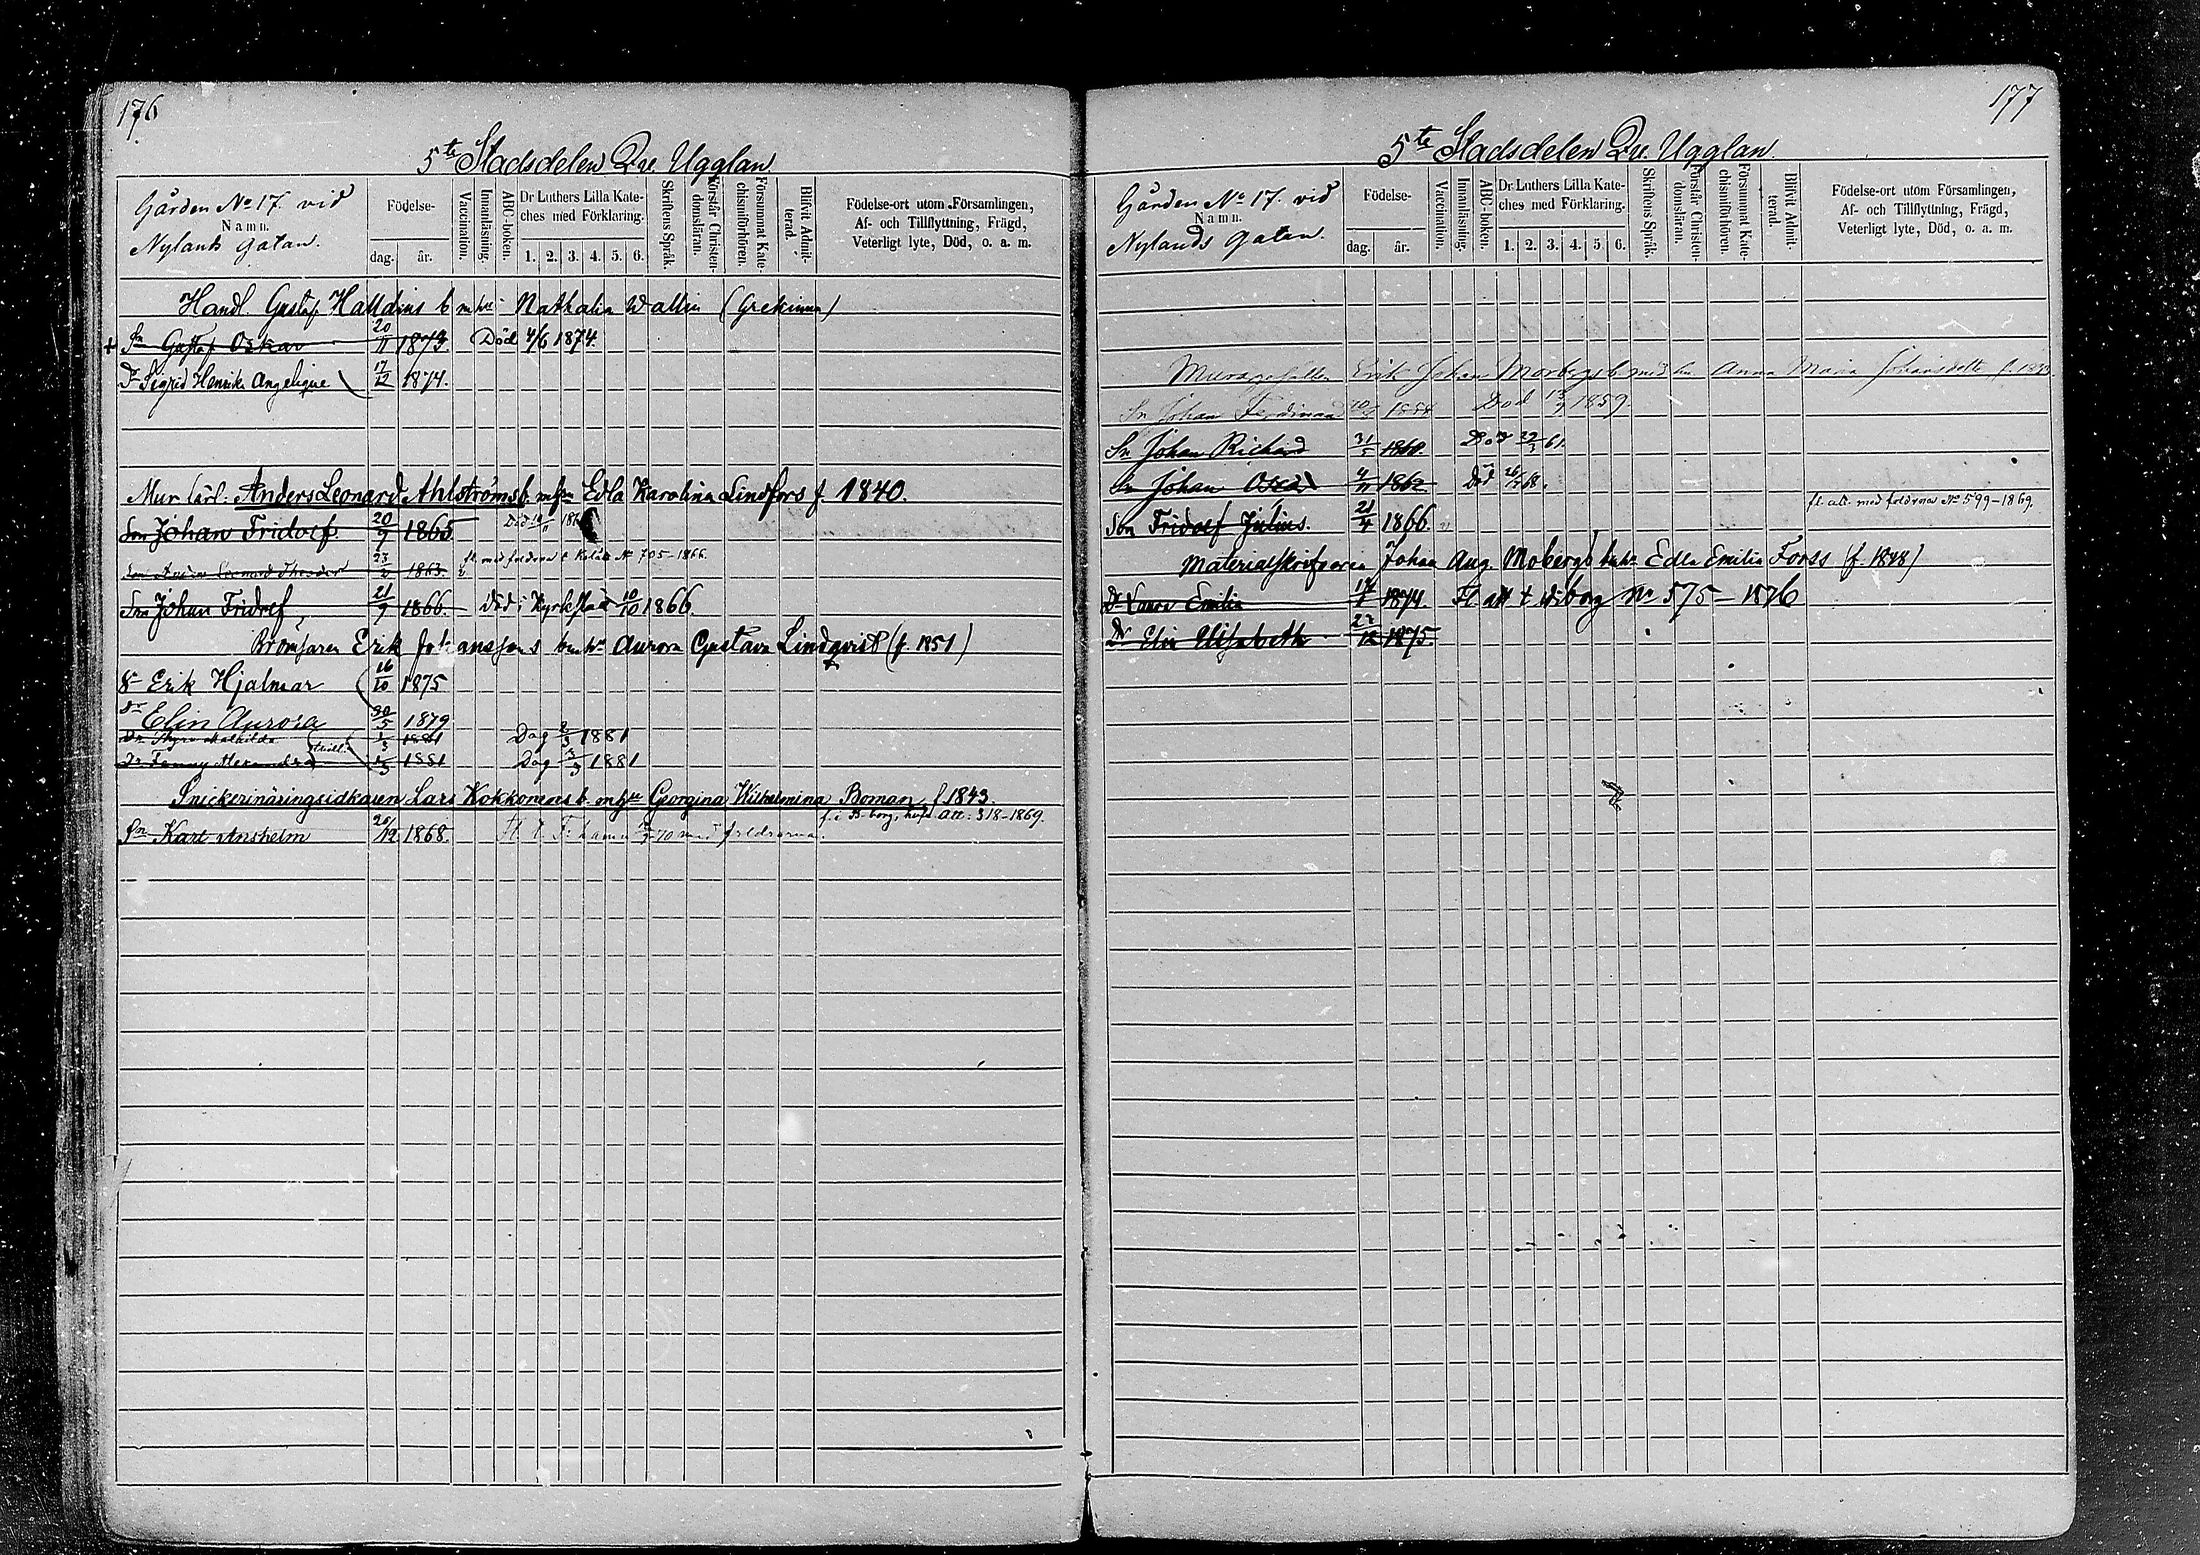 176
5te Stadsdelen Qv. Ugglan
Gården No 17. vid
Namn.
Nylands gatan.
Födelse-
dag. år.
Vaccination.
Innanläsning.
ABC-boken.
Dr Luthers Lilla Kate-
ches med Förklaring.
1. 2. 3. 4. 5. 6.
Skriftens Språk.
Förstår Christen-
domsläran.
Försummat Kate-
chismiförhören.
Blifvit Admit-
terad.
Födelse-ort utom Församlingen,
Af- och Tillflyttning, Frägd,
Veterligt lyte, Död, o. a. m.
Handl. Gustaf Halldins b. m hu Nathalia Wallin (Grekinna)
+ Sn Gustaf Oskar 20/11 1873 Död 4/6 1874.
Dr Sigrid Henrika Angelique 17/12 1874.
Mur lärl. Anders Leonard Ahlströms b. m hu Edla Karolina Lindfors f. 1840.
Son Johan Fridolf 20/9 1865 Död
Son Leonard Theodor 23/2 1863. fl. med foldrarna t. No 705-1866.
Son Johan Fridolf 21/9 1866. död i Kyrkslätt 10/10 1866
Bromsaren Erik Johanssons b m hu Aurora Gustava Lindqvist (f. 1851)
Sn Erik Hjalmar 16/10 1875
Dr Elin Aurora 30/5 1879
Dr Mathilda 1/3 1881 Dog 2/3 1881
Dr Fanny Alexandra 1/3 1881 Dog 3/3 1881
Snickerinäringsidkaren Lars Kokkonens b. m hu Georgina Wilhelmina Boman f 1843.
f. i B-borg, Att: 318-1869.
Sn Karl Anshelm 20/12 1868. fl t F:hamn 70 med foldrarna.
177
5te Stadsdelen Qv. Ugglan
Gården No 17. vid
Namn.
Nylands gatan.
Födelse-
dag. år.
Vaccination.
Innanläsning.
ABC-boken.
Dr Luthers Lilla Kate-
ches med Förklaring.
1. 2. 3. 4. 5. 6.
Skriftens Språk.
Förstår Christen-
domsläran.
Försummat Kate-
chismiförhören.
Blifvit Admit-
terad.
Födelse-ort utom Församlingen,
Af- och Tillflyttning, Frägd,
Veterligt lyte, Död, o. a. m.
Muregesällen Erik Johan Morbergs b. med hu Anna Maria Johansdotter f. 1833.
Sn Johan Ferdinand 1858 Död 1859.
Sn Johan Richard 31/5 1860 Död 61.
Sn Johan Oscar 4/11 1862. Död 68.
fl. att. med foldrarna No 599-1869.
Son Fridolf Julius. 21/4 1866.
Materialskrifvaren Johan Aug. Mobergs b m hu Edla Emilia Forss (f. 1848)
Dr Laura Emilia 1874. Fl att t Wiborg No 575-1876
Dr Elin Elisabeth 22/12 1875.